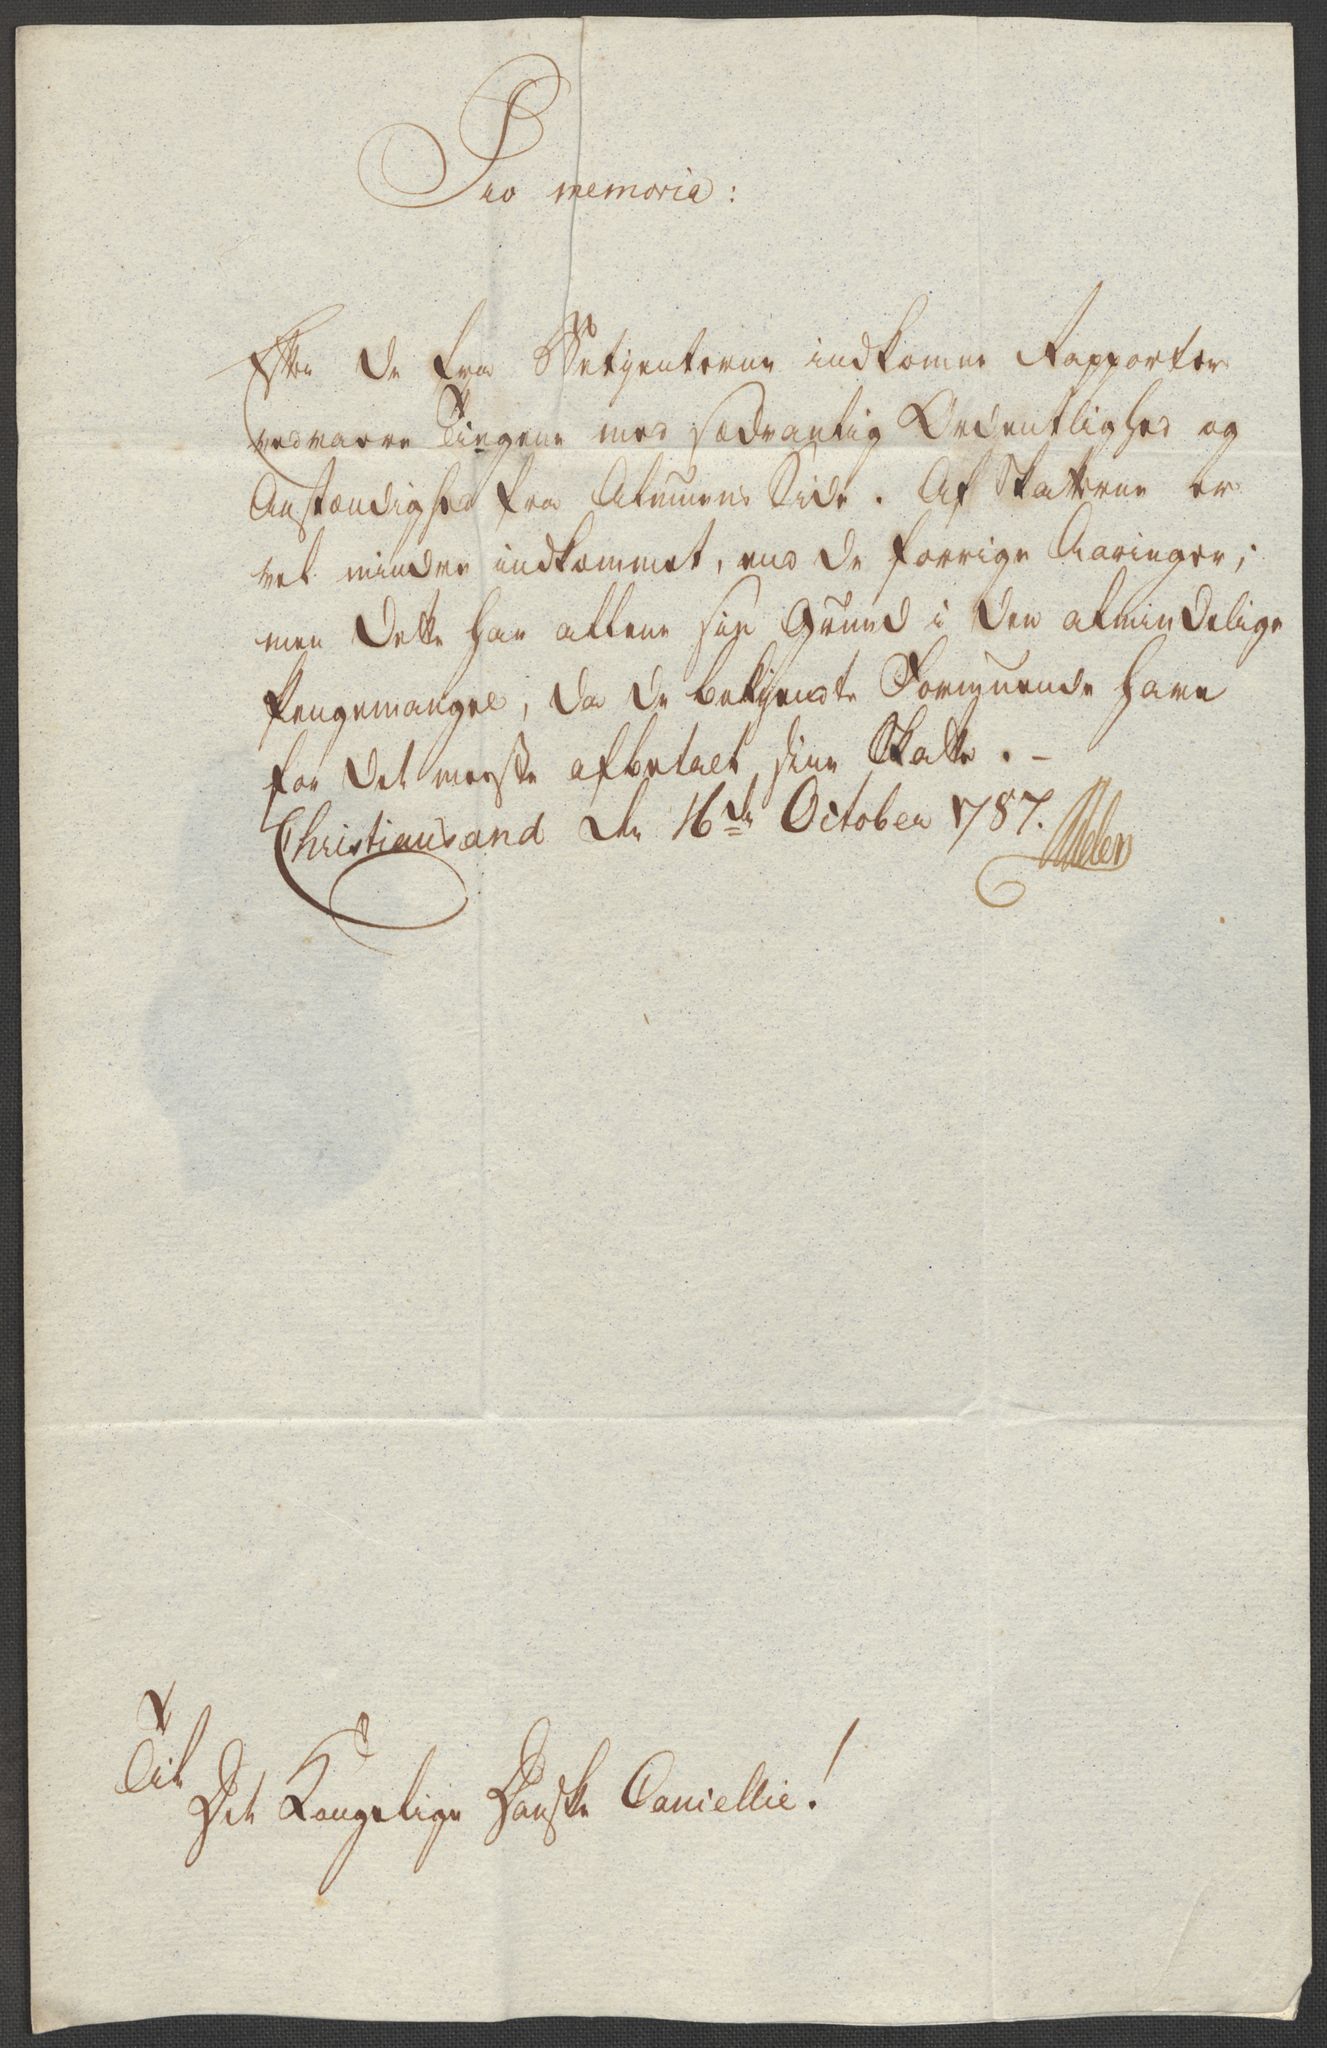 Pro memoria:
Efter de fra Betjenterne indkomne Rapporter
vedvarer Tingene med sædvanlig Ordentlighed og
Anstændighed fra Almuens Side. Af Skatterne er
vel mindre indkommet, end de forrige Aaringer;
men dette har allene sin Grund i den almindelige
Pengemangel, da de bekjendte Formuende have
for det meeste afbetalt sine Skatte. -
Christiansand den 16de October 1787. Adeler
Til
Det Kongelige Danske Cancellie!